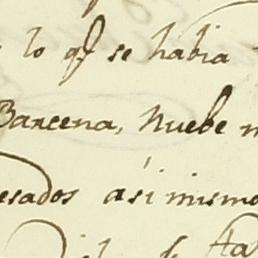 lo q̃ se habia
Barcena, Nuebe
esados asimismo